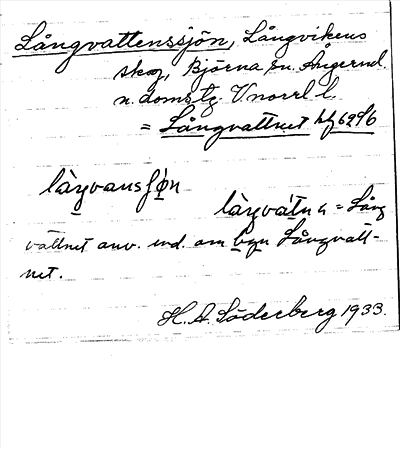 Långvattenssjön, Långvikens
skog, Björna sn. Ångerml.
n. doms tg. Vnorrl l.
= Långvattnet bf 6296
Långvattnet = Lång
vattnet anv. end. om byn Långvatt-
net.
H. A. Söderberg 1933.